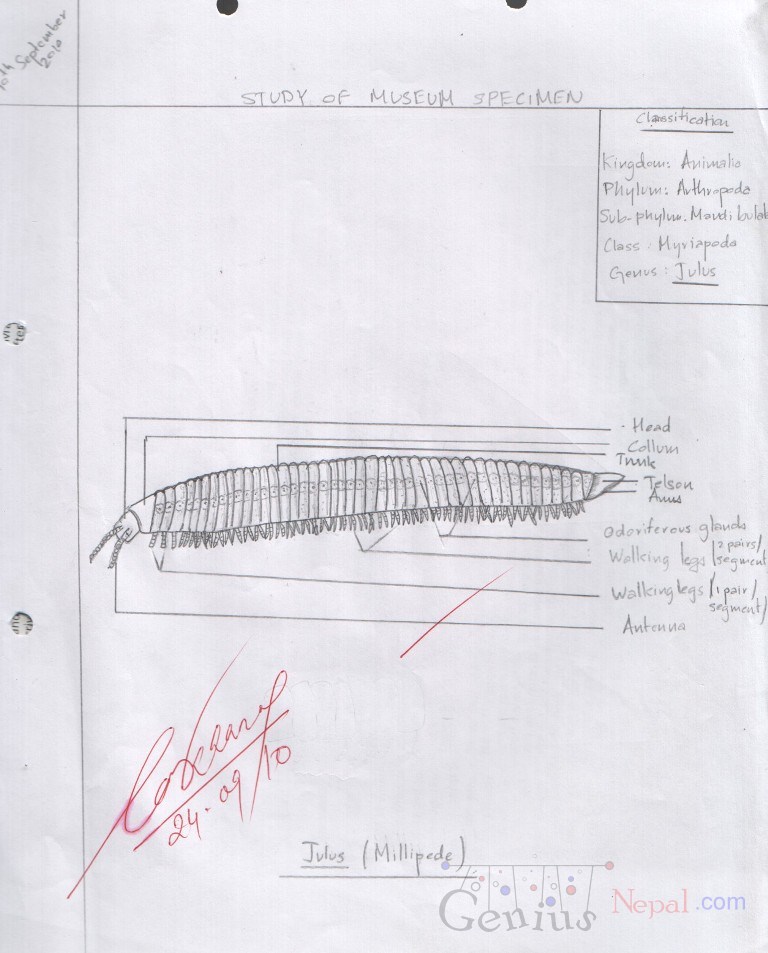 10th September
2010
STUDY OF MUSEUM SPECIMEN
Classification
Kingdom: Animalia
Phylum: Arthropoda
Sub-phylum. Mandibulat
Class : Myriapoda
Genus : Julus
Head
Collum
Trunk
Telson
Anus
Odoriferous glands
Walking legs (2 pairs/
segment
Walking legs (1 pair/
segment)
Antenna
24.09/10
Julus (Millipede)
Genius Nepal.com